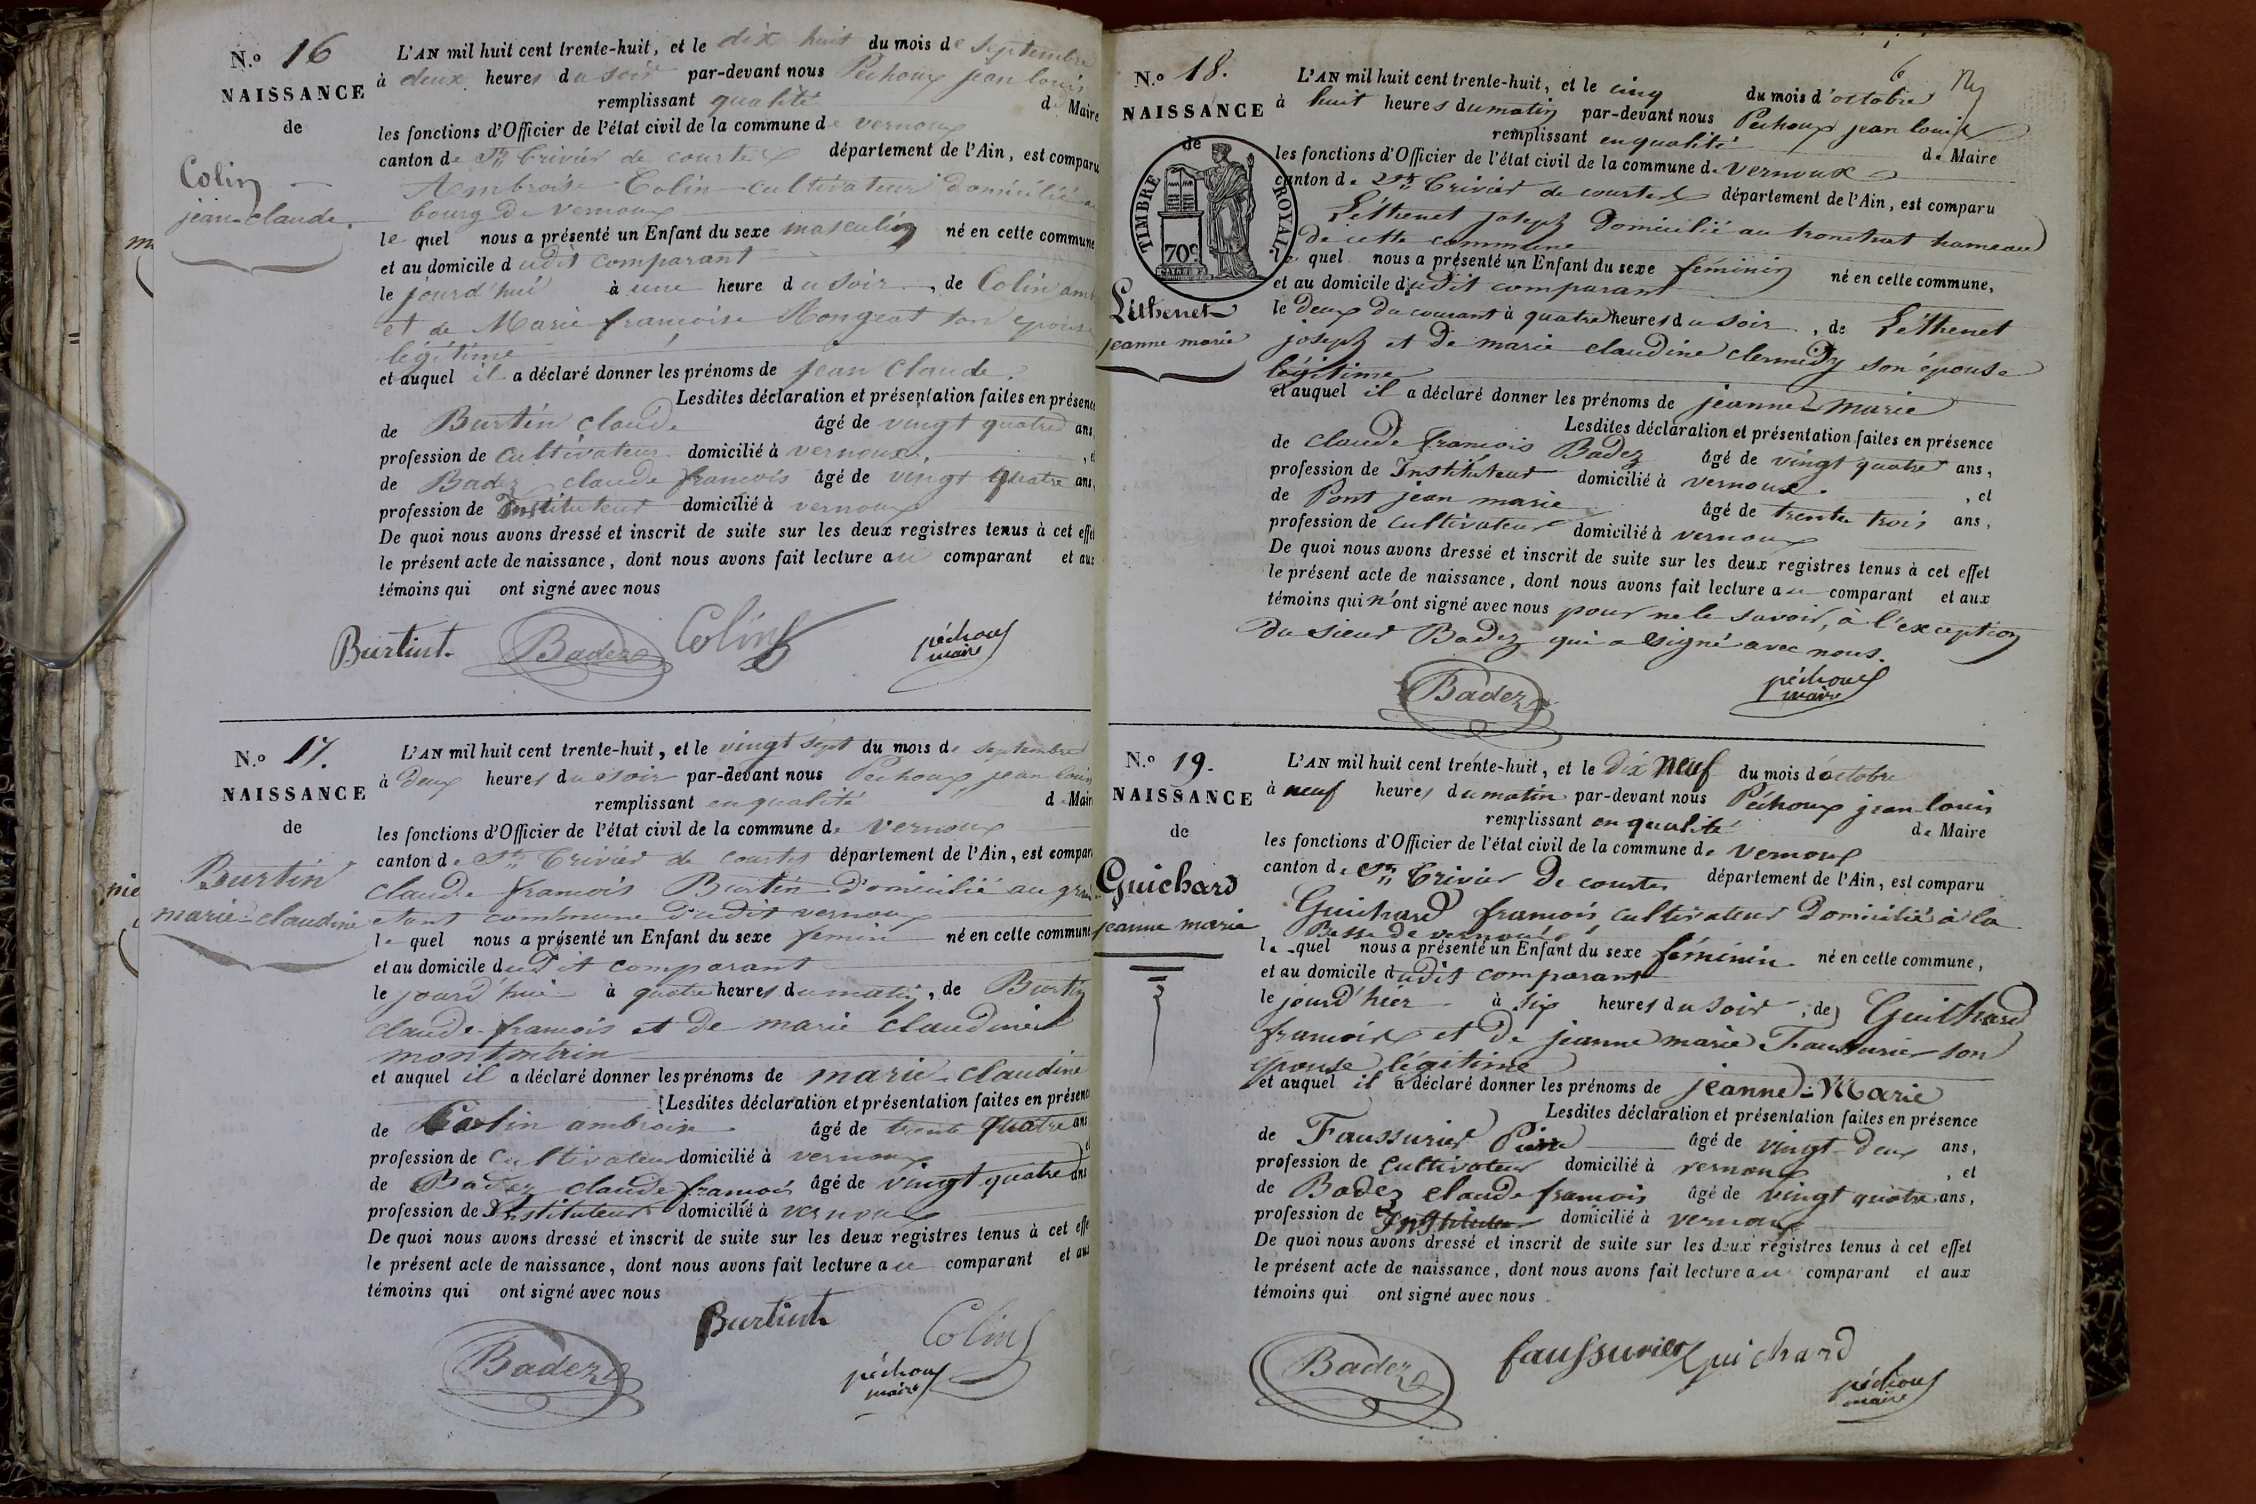 N.º 16
NAISSANCE
de
Colin
jean-claude.
L'AN mil huit cent trente-huit, et le dix huit du mois de septembre
à deux heures du soir par-devant nous Pechoux jean louis
remplissant qualité de Maire
les fonctions d'Officier de l'état civil de la commune de vernoux
canton de St Trivier de courtes département de l'Ain, est comparu
Ambroise Colin cultivateur domicilié au
bourg de vernoux
le quel nous a présenté un Enfant du sexe masculin né en cette commune
et au domicile dudit comparant
le jourd'hui à une heure du soir, de Colin amb
et de Marie françoise son épouse
légitime
et auquel il a déclaré donner les prénoms de jean claude.
Lesdites déclaration et présentation faites en présence
de Burtin claude âgé de vingt quatre ans,
profession de cultivateur domicilié à vernoux, et
de Badez claude françois âgé de vingt quatre ans,
profession de Instituteur domicilié à vernoux
De quoi nous avons dressé et inscrit de suite sur les deux registres tenus à cet effet
le présent acte de naissance, dont nous avons fait lecture au comparant et aux
témoins qui ont signé avec nous
Burtint. Badez Colin péchoux
maire
N.º 17.
NAISSANCE
de
Burtin
marie-claudine
L'AN mil huit cent trente-huit, et le vingt sept du mois de septembre
à deux heures du soir par-devant nous Pechoux, jean louis
remplissant en qualité de Maire
les fonctions d'Officier de l'état civil de la commune de vernoux
canton de St Trivier de courtes département de l'Ain, est comparu
claude françois Burtin domicilié au grand
etant commune dudit vernoux
le quel nous a présenté un Enfant du sexe femin né en cette commune
et au domicile dudit comparant
le jourd'hui à quatre heures du matin, de Burtin
claude-françois et de marie claudine
et auquel il a déclaré donner les prénoms de marie-claudine
Lesdites déclaration et présentation faites en présence
de Colin ambroise âgé de trente quatre ans
profession de cultivateur domicilié à vernoux et
de Badez claude françois âgé de vingt quatre ans
profession de Instituteur domicilié à vernoux
De quoi nous avons dressé et inscrit de suite sur les deux registres tenus à cet effet
le présent acte de naissance, dont nous avons fait lecture au comparant et aux
témoins qui ont signé avec nous
Burtint. Colin
Badez péchoux
maire
6
N.º 18.
NAISSANCE
de
TIMBRE ROYAL
70c
Léthenet
jeanne marie
L'AN mil huit cent trente-huit, et le cinq du mois d'octobre
à huit heures du matin par-devant nous Pechoux jean louis
remplissant en qualité de Maire
les fonctions d'Officier de l'état civil de la commune de vernoux
canton de St Trivier de courtes département de l'Ain, est comparu
Léthenet joseph domicilié au tronchat hameau
de cette commune
le quel nous a présenté un Enfant du sexe féminin né en cette commune,
et au domicile dudit comparant
le deux du courant à quatre heures du soir, de Léthenet
joseph et de marie claudine son épouse
légitime
et auquel il a déclaré donner les prénoms de jeanne-marie
Lesdites déclaration et présentation faites en présence
de claude françois Badez âgé de vingt quatre ans,
profession de Instituteur domicilié à vernoux. , et
de Pont jean marie âgé de trente trois ans,
profession de cultivateur domicilié à vernoux
De quoi nous avons dressé et inscrit de suite sur les deux registres tenus à cet effet
le présent acte de naissance, dont nous avons fait lecture au comparant et aux
témoins qui n'ont signé avec nous pour ne le savoir, à l'exception
du sieur Badez qui a signé avec nous.
Badez péchoux
maire
N.º 19.
NAISSANCE
de
Guichard
jeanne marie
L'AN mil huit cent trente-huit, et le dix neuf du mois d'octobre
à neuf heures du matin par-devant nous Péchoux jean-louis
remplissant en qualité de Maire
les fonctions d'Officier de l'état civil de la commune de vernoux
canton de St Trivier de courtes département de l'Ain, est comparu
Guichard françois cultivateur domicilié à la
Besse de vernoux
le quel nous a présenté un Enfant du sexe féminin né en cette commune,
et au domicile dudit comparant
le jourd'hier à six heures du soir, de Guichard
françois et de jeanne marie Faussurier son
épouse légitime
et auquel il a déclaré donner les prénoms de jeanne-Marie
Lesdites déclaration et présentation faites en présence
de Faussurier Pierre âgé de vingt-deux ans,
profession de cultivateur domicilié à vernoux , et
de Badez claude françois âgé de vingt quatre ans,
profession de Instituteur domicilié à vernoux
De quoi nous avons dressé et inscrit de suite sur les deux registres tenus à cet effet
le présent acte de naissance, dont nous avons fait lecture au comparant et aux
témoins qui ont signé avec nous.
Badez faussurier Guichard
péchoux
maire